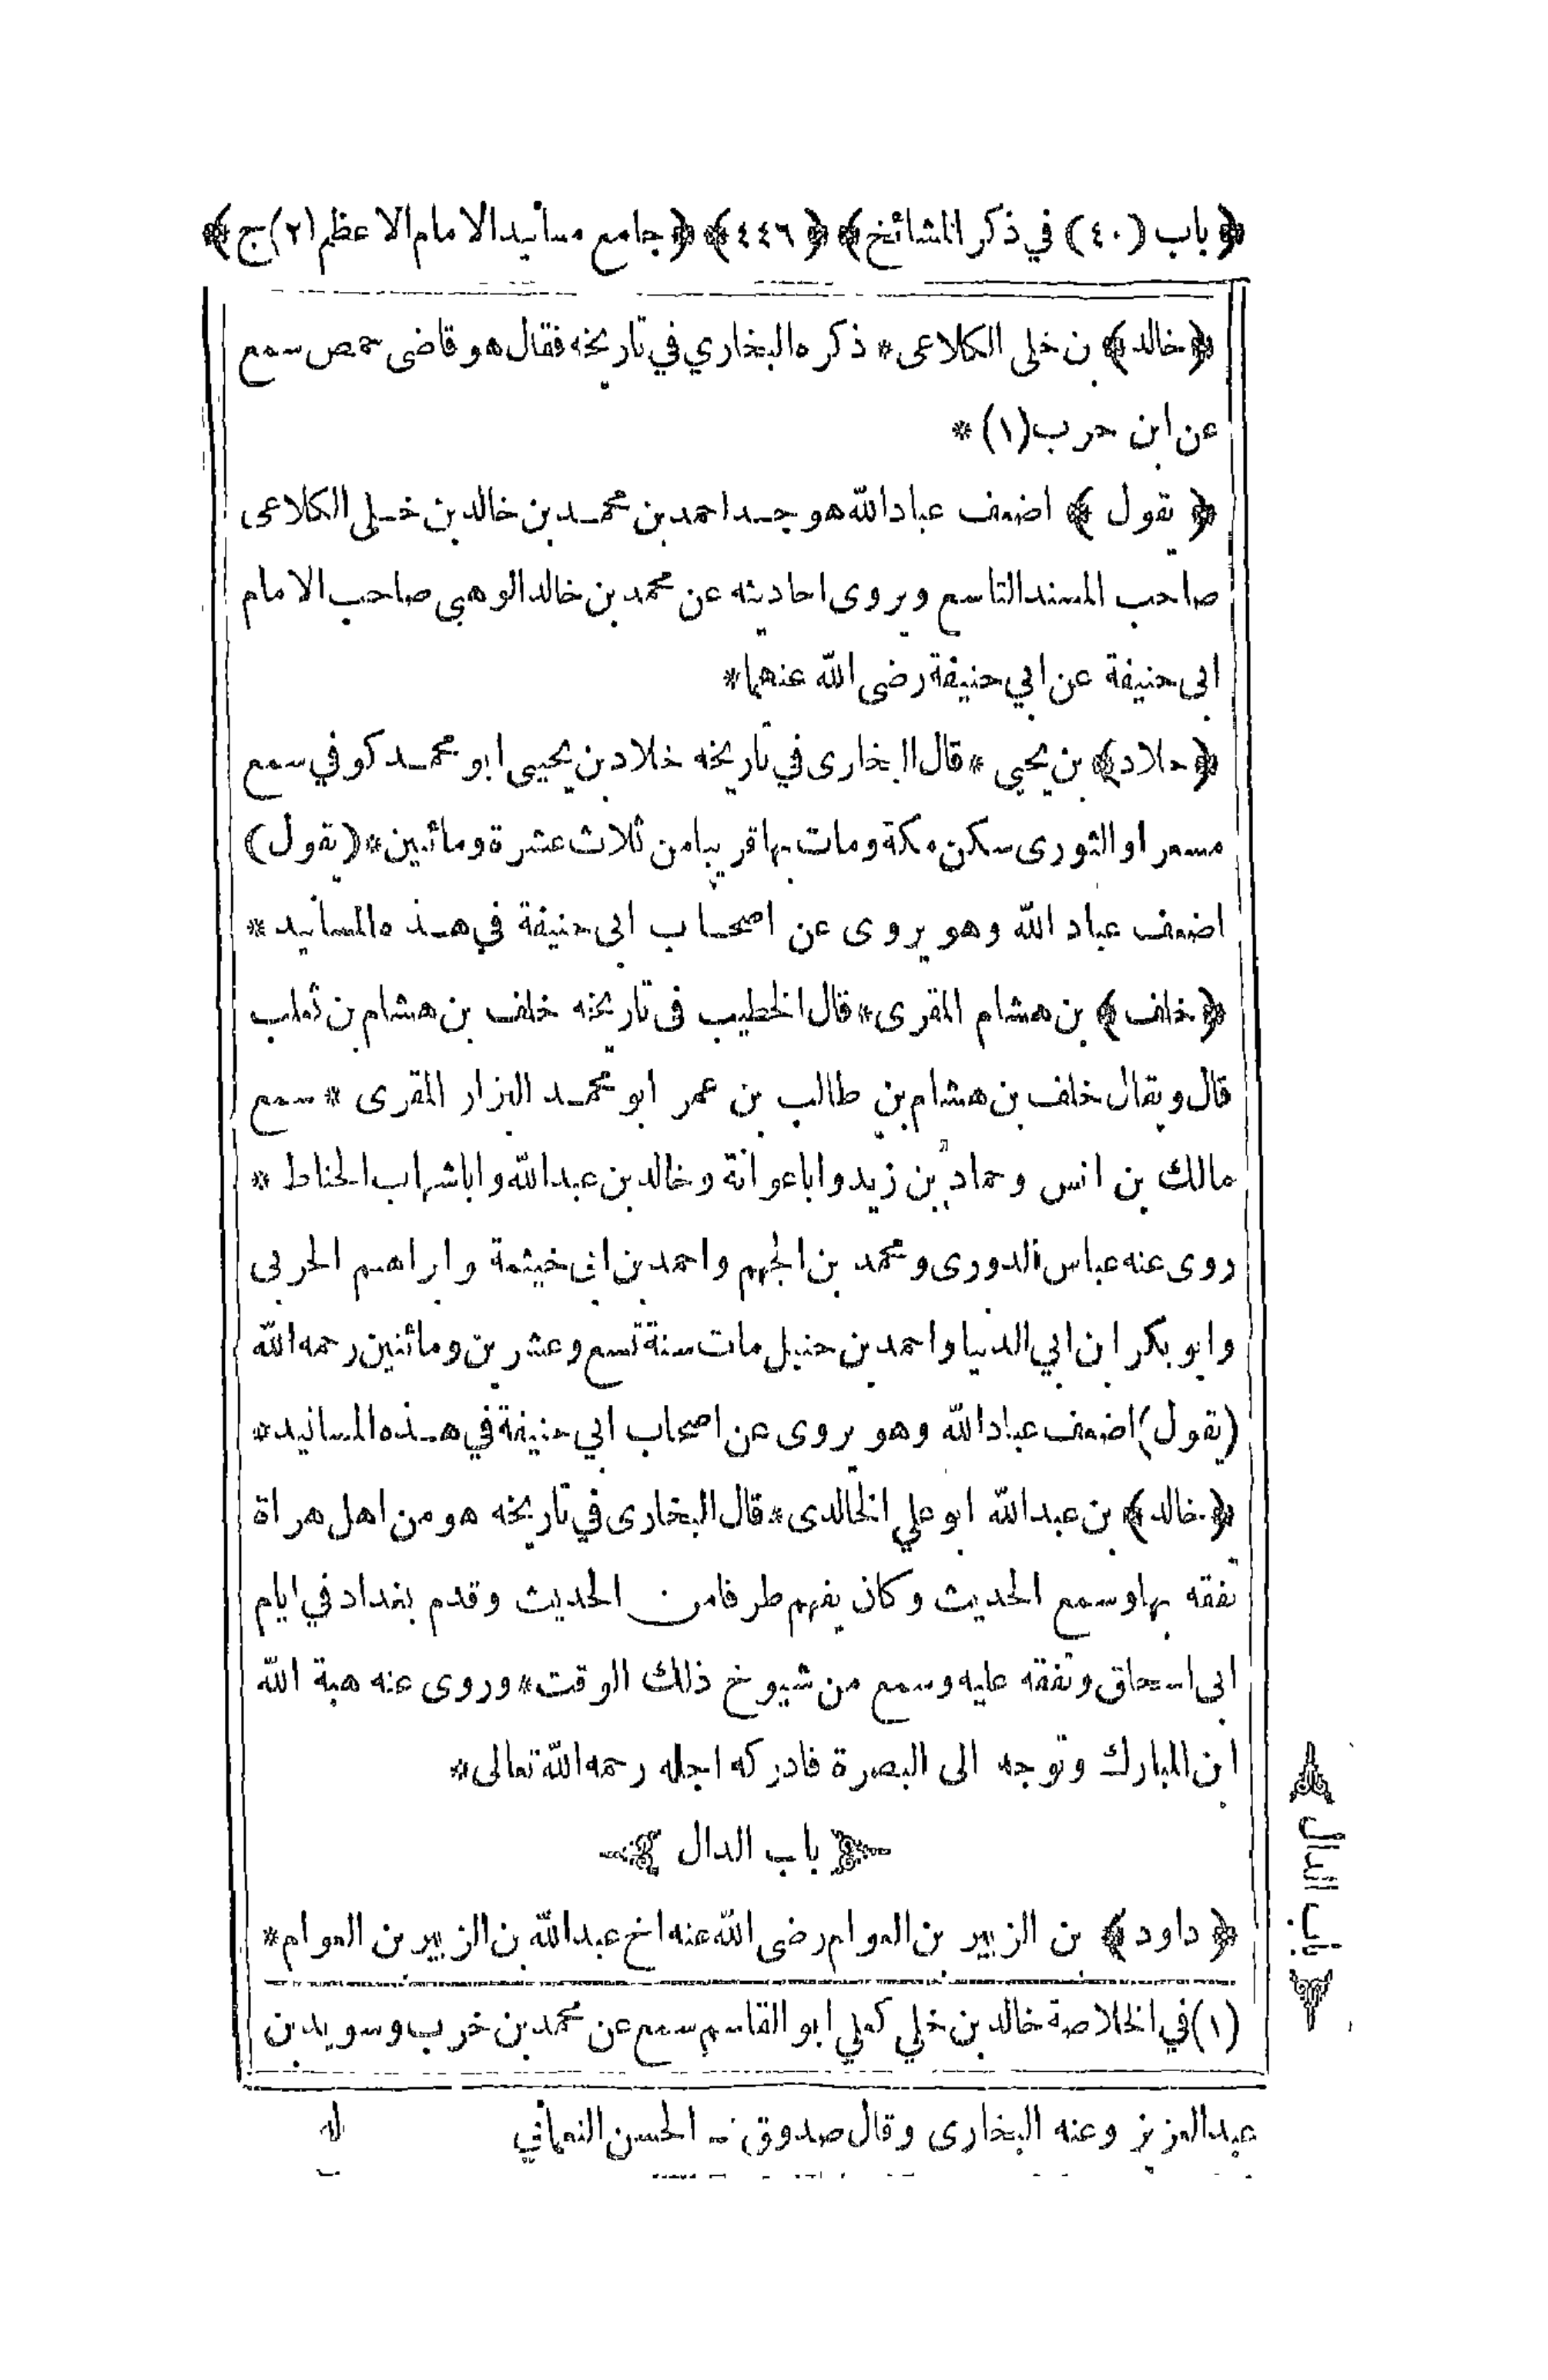 ﴿باب (٤٠) في ذكر المشائخ﴾ ﴿٤٤٦﴾ ﴿جامع مسانيد الامام الاعظم (٢) ج﴾
﴿خالد﴾ بن خلى الكلاعى * ذكره البخاري في تاريخه فقال هو قاضى حمص سمع
عن ابن حرب (١) *
﴿يقول﴾ اضعف عباد الله هو جد احمد بن محمد بن خالد بن خلى الكلاعى
صاحب المسند التاسع ويروى احاديثه عن محمد بن خالد الوهبي صاحب الامام
ابى حنيفة عن ابي حنيفة رضى الله عنهما *
﴿خلاد﴾ بن يحيى * قال البخارى في تاريخه خلاد بن يحيى ابو محمد كوفي سمع
مسعر او الثورى سكن مكة ومات بها قريبا من ثلاث عشرة ومائتين * (يقول)
اضعف عباد الله وهو يروى عن اصحاب ابى حنيفة في هذه المسانيد *
﴿خلف﴾ بن هشام المقرى * قال الخطيب فى تاريخه خلف بن هشام بن ثعلب
قال ويقال خلف بن هشام بن طالب بن عمر ابو محمد البزار المقرى * سمع
مالك بن انس وحماد بن زيد وابا عوانة وخالد بن عبد الله وابا شهاب الحناط *
روى عنه عباس الدورى ومحمد بن الجهم واحمد بن ابى خيثمة وابراهيم الحربى
وابو بكر ابن ابي الدنيا واحمد بن حنبل مات سنة تسع وعشرين ومائتين رحمه الله
(يقول) اضعف عباد الله وهو يروى عن اصحاب ابي حنيفة في هذه المسانيد *
﴿خالد﴾ بن عبد الله ابو علي الخالدى * قال البخارى في تاريخه هو من اهل هراة
تفقه بها وسمع الحديث وكان يفهم طرفا من الحديث وقدم بغداد في ايام
ابى اسحاق وتفقه عليه وسمع من شيوخ ذلك الوقت * وروى عنه هبة الله
ابن المبارك وتوجه الى البصرة فادركه اجله رحمه الله تعالى *
باب الدال
﴿داود﴾ بن الزبير بن العوام رضى الله عنه اخ عبد الله بن الزبير بن العوام *
(١) في الخلاصة خالد بن خلي كعلي ابو القاسم سمع عن محمد بن خرب وسويد بن
عبد العزيز وعنه البخارى وقال صدوق - الحسن النعماني
باب الدال